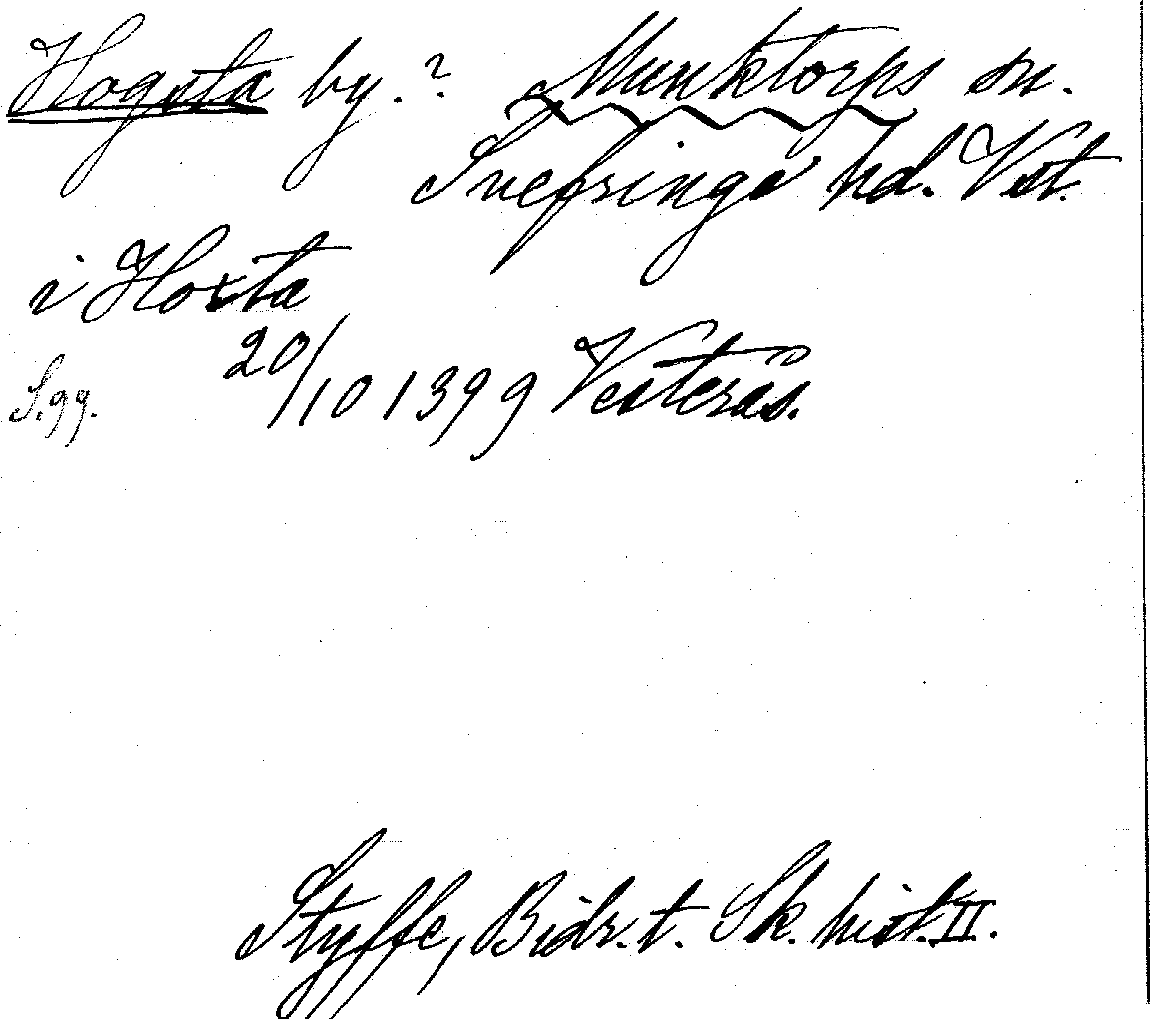 Hogsta by.? Munktorps sn.
Snefringe hd. Vst.
i Hoxta
20/10 1399 Vesterås.
S. 99.
Styffe, Bidr. t. Sk. hist. II.